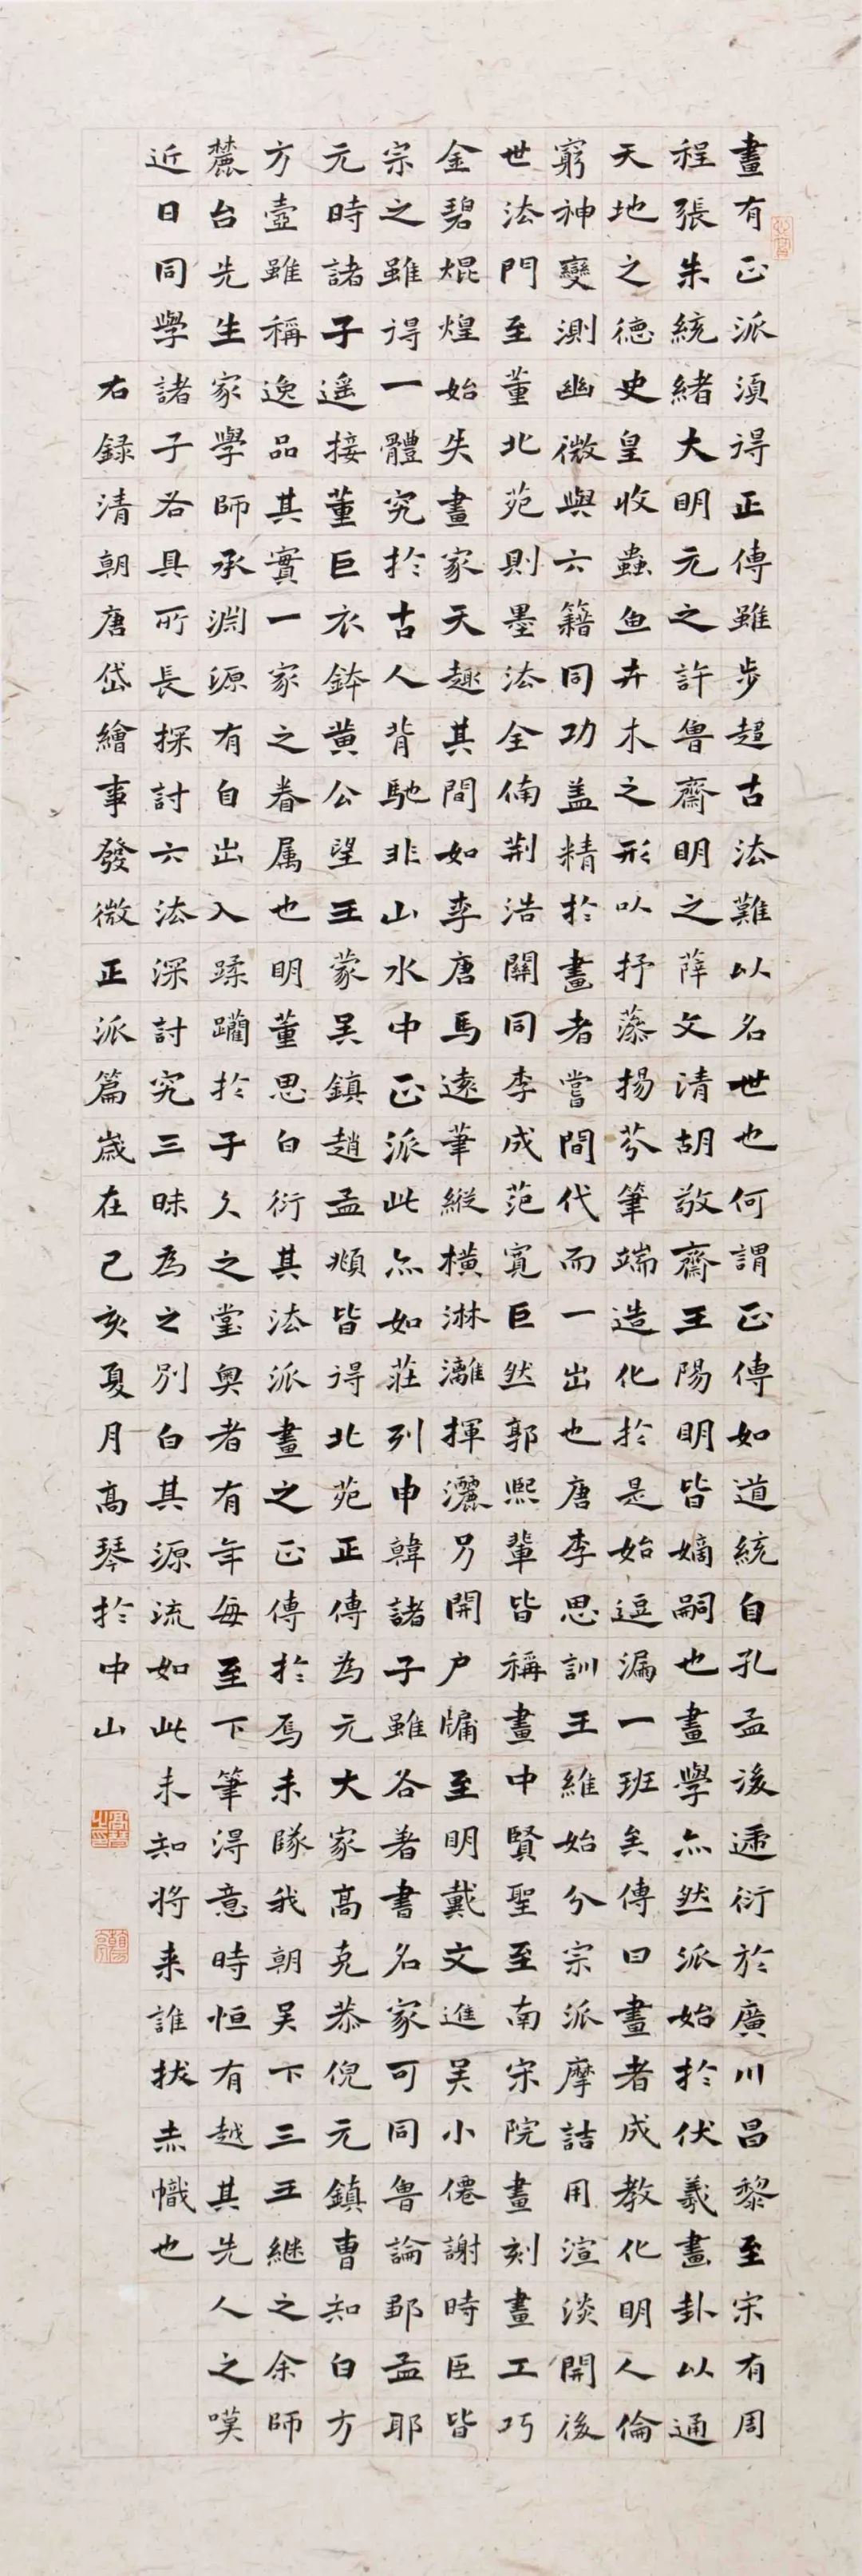 畫有正派須得正傳雖步超古法難以名世也何謂正傳如道統自孔孟後遞衍於廣川昌黎至宋有周
程張朱統緒大明元之許魯齋明之薛文清胡敬齋王陽明皆嫡嗣也畫學亦然派始於伏羲畫卦以通
天地之德史皇收蟲魚卉木之形以抒藻揚芬筆端造化於是始逗漏一班矣傳曰畫者成教化明人倫
窮神變測幽微與六籍同功蓋精於畫者嘗間代而一出也唐李思訓王維始分宗派摩詰用渲淡開後
世法門至董北苑則墨法全備荊浩關同李成范寬巨然郭熙輩皆稱畫中賢聖至南宋院畫刻畫工巧
金碧焜煌始失畫家天趣其間如李唐馬遠筆縱橫淋漓揮灑另開戶牖至明戴文進吴小僊謝時臣皆
宗之雖得一體究於古人背馳非山水中正派此亦如莊列申韓諸子雖各著書名家可同魯論鄒孟耶
元時諸子遥接董巨衣鉢黄公望王蒙吴鎮趙孟頫皆得北苑正傳為元大家高克恭倪元鎮曹知白方
方壺雖稱逸品其實一家之眷属也明董思白衍其法派畫之正傳於焉未隊我朝吴下三王継之余師
麓台先生家學師承淵源有自出入蹂躪於子久之堂奥者有年每至下筆得意時恒有越其先人之嘆
近日同學諸子各具所長探討六法深討究三昧為之別白其源流如此未知将来誰拔赤幟也
右録清朝唐岱繪事發微正派篇歲在己亥夏月高琴於中山